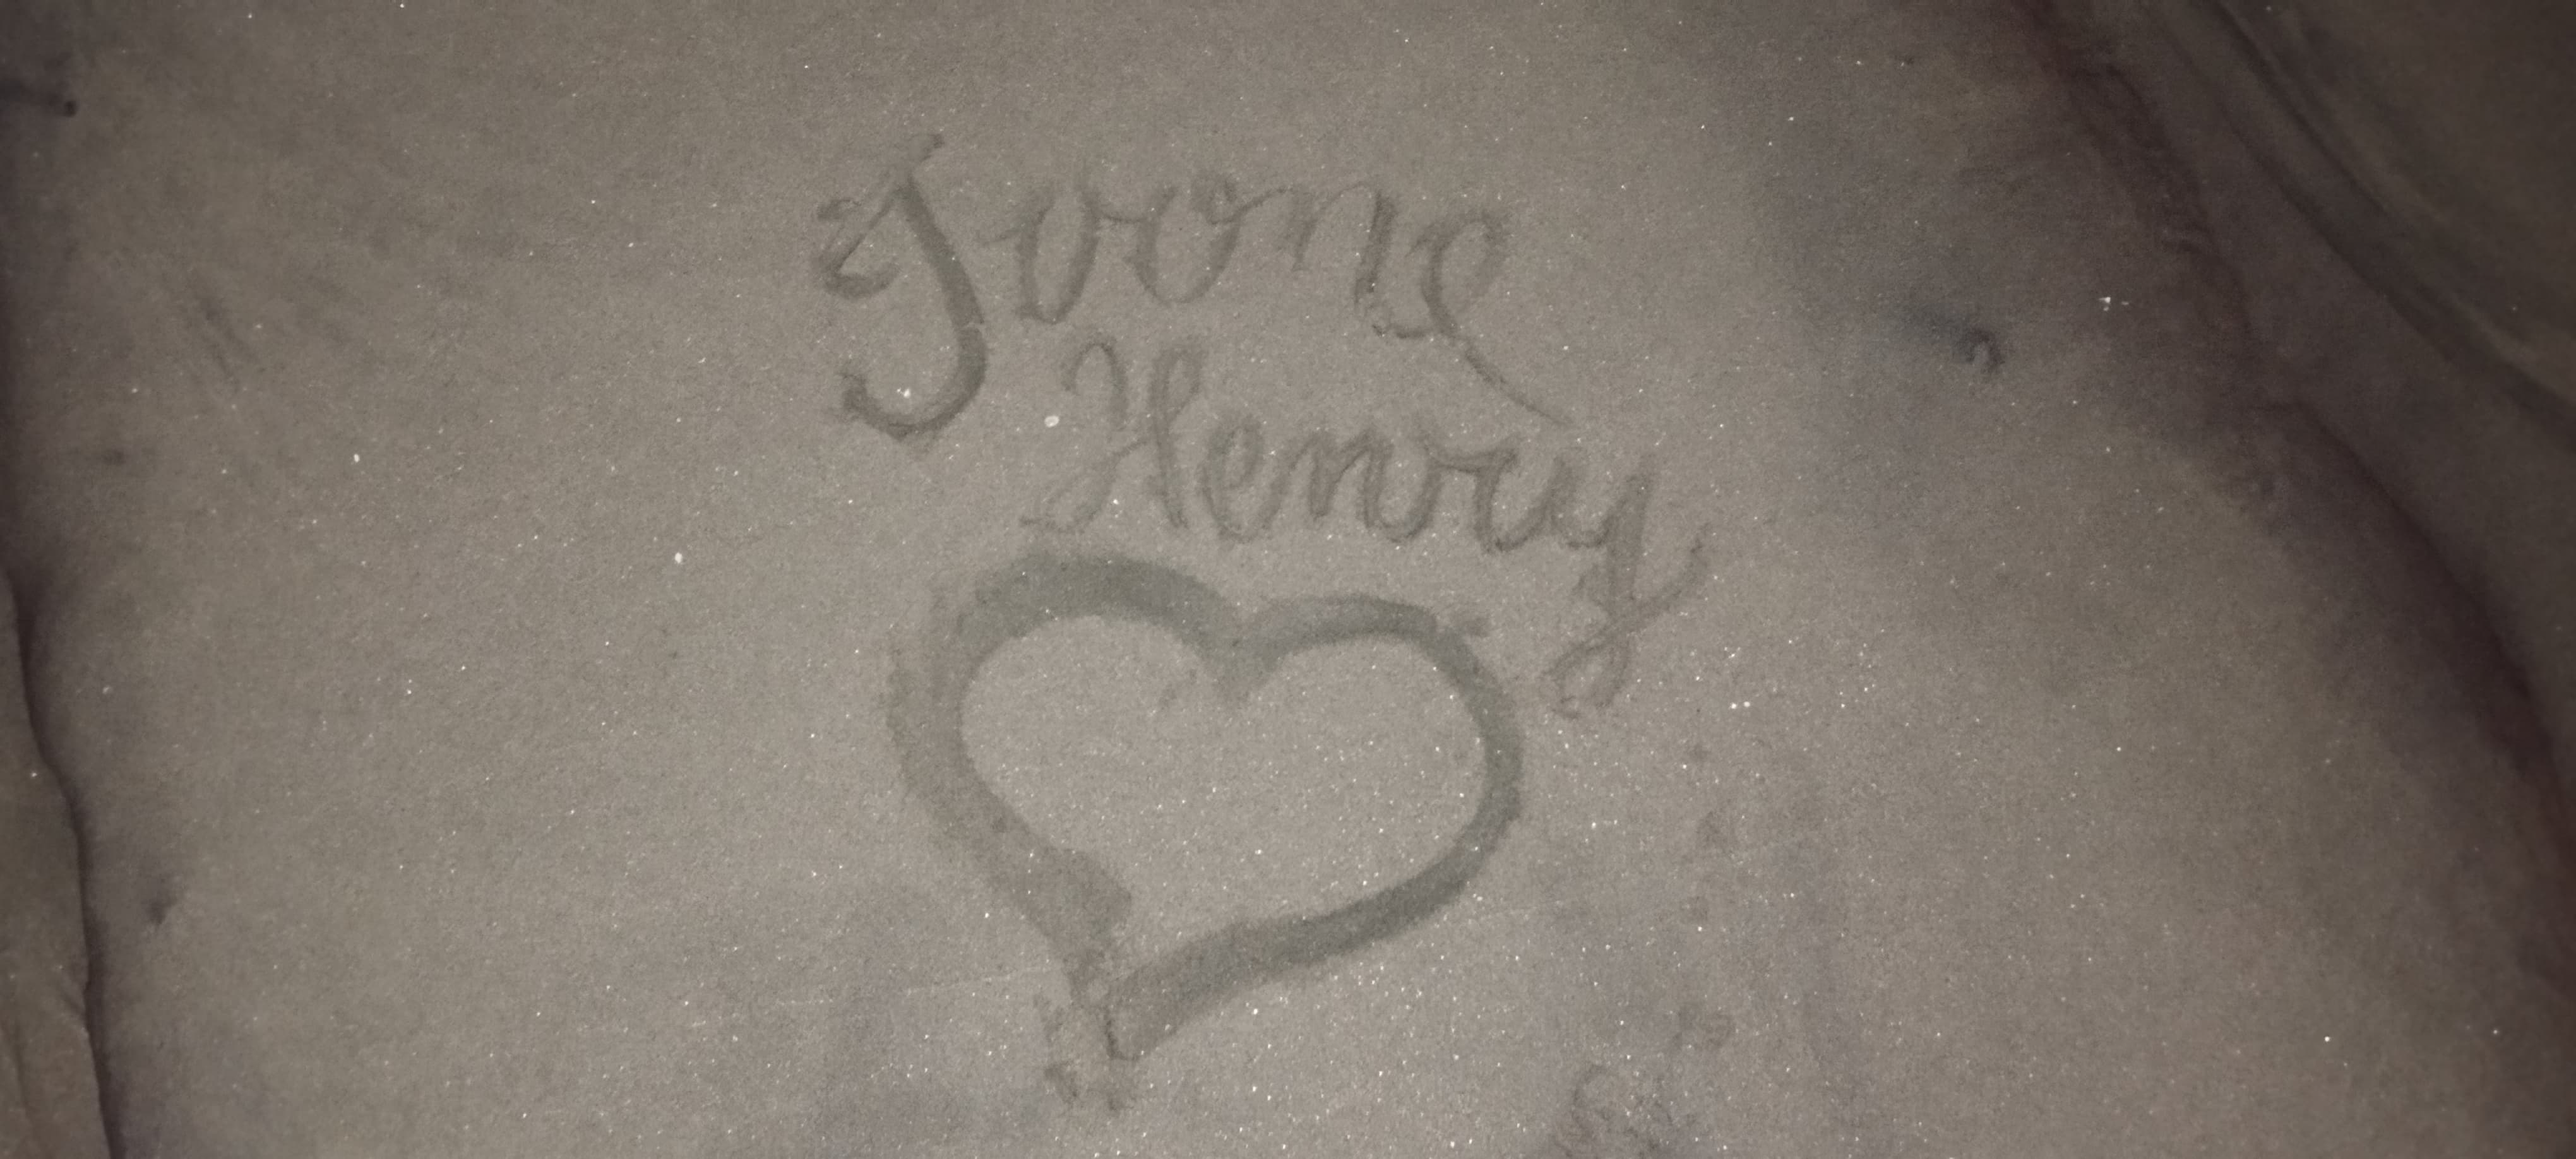 Ivone
Henry